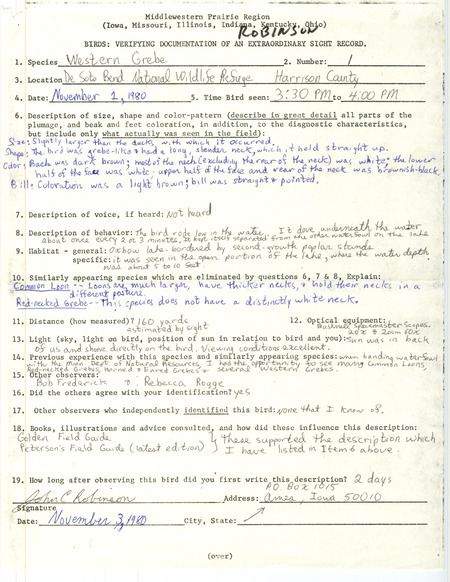 Middlewestern Prairie Region
(Iowa, Missouri, Illinois, Indiana, Kentucky, Ohio)
ROBINSON
BIRDS: VERIFYING DOCUMENTATION OF AN EXTRAORDINARY SIGHT RECORD.
1. Species Western Grebe 2. Number: 1
3. Location De Soto Bend National Wildlife Refuge Harrison County
4. Date: November 1, 1980 5. Time Bird seen: 3:30 PM to 4:00 PM
6. Description of size, shape and color-pattern (describe in great detail all parts of the
plumage, and beak and feet coloration, in addition, to the diagnostic characteristics,
but include only what actually was seen in the field):
Size: Slightly larger than the ducks with which it occurred.
Shape: The bird was grebe-like & had a long, slender neck, which it held straight up.
Color: Back was dark brown; most of the neck (excluding the rear of the neck) was white; the lower
half of the face was white; upper half of the face and rear of the neck was brownish-black.
Bill: Coloration was a light brown; bill was straight & pointed.
7. Description of voice, if heard: Not heard
8. Description of behavior: The bird rode low in the water. It dove underneath the water
about once every 2 or 3 minutes. It kept itself separated from the other waterfowl on the lake
9. Habitat - general: Oxbow lake bordered by second-growth poplar stands.
specific: it was seen in the open portion of the lake, where the water depth
was about 5 to 10 feet
10. Similarly appearing species which are eliminated by questions 6, 7 & 8, Explain:
Common Loon -- Loons are much larger, have thicker necks, & hold their necks in a
different posture.
Red-necked Grebe -- This species does not have a distinctly white neck.
11. Distance (how measured)? 160 yards 12. Optical equipment:
estimated by sight Bushnell Spacemaster Scopes, 20x & zoom 60x
13. Light (sky, light on bird, position of sun in relation to bird and you): Sun was in back
of us and shone directly on the bird. Viewing conditions excellent.
14. Previous experience with this species and similarly appearing species: when banding waterfowl
with the Maine Dept of Natural Resources I had the opportunity to see many Common Loons,
Red-necked Grebes, Horned & Eared Grebes & several Western Grebes.
15. Other observers:
Bob Frederick & Rebecca Rogge
16. Did the others agree with your identification? yes
17. Other observers who independently identified this bird: none that I know of.
18. Books, illustrations and advice consulted, and how did these influence this description:
Golden Field Guide
Peterson's Field Guide (latest edition) } These supported the description which
I have listed in Item 6 above.
19. How long after observing this bird did you first write this description? 2 days
P.O. Box 1015
John C Robinson Address: Ames, Iowa 50010
Signature
Date: November 3, 1980 City, State:
(over)